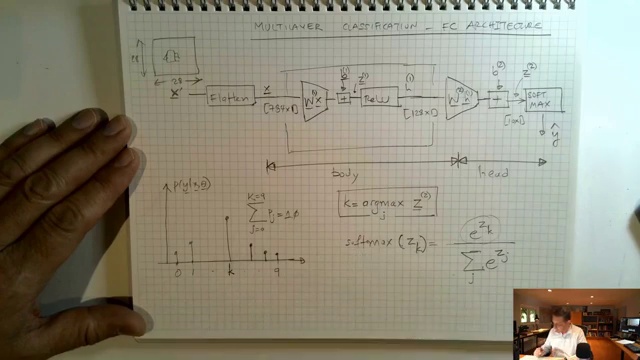 MULTILAYER CLASSIFICATION - FC ARCHITECTURE
28
28
X
Flatten
x
[784x1]
W⁽¹⁾x
b⁽¹⁾
+
z⁽¹⁾
ReLU
h⁽¹⁾
[128x1]
W⁽²⁾h⁽¹⁾
b⁽²⁾
+
z⁽²⁾
[10x1]
SOFT
MAX
ŷ
body
head
p(y|x,θ)
K=9
Σ p̂j = 1.0
j=0
0 1 . k 9
k = argmax z⁽²⁾
j
softmax (z_k) = e^{z_k}
Σ e^{z_j}
j